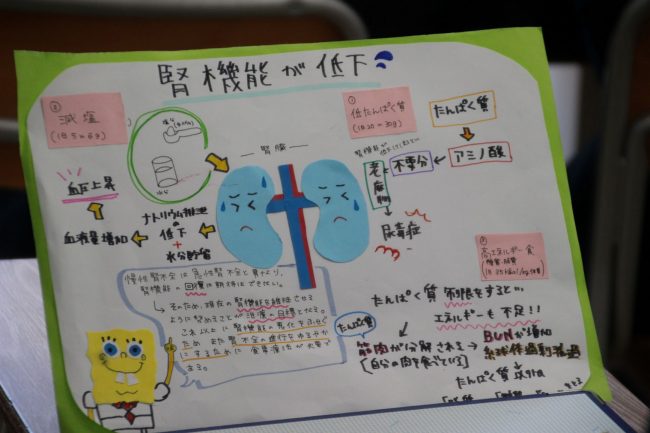 腎機能が低下
② 減塩
(1日5~6g)
塩
① 低たんぱく質
(1日20~30g)
たんぱく質
アミノ酸
不要分
老廃物
尿毒症
腎臓
血圧上昇
血液量増加
ナトリウム排泄
の
低下
+
水分貯留
高エネルギー食
たんぱく質 制限をすると…
エネルギーも不足!!
筋肉が分解される → BUNが増加
[自分の肉を食べている]
糸球体過剰濾過
たんぱく質以外は
慢性腎不全は急性腎不全と異なり、
腎機能の回復は期待はできない。
そのため、現在の腎機能を維持させる
ように努めることが治療の目標となる。
これ以上に腎機能の悪化をふせぐ
ため、また腎不全の進行をゆるやか
にするために食事療法が大事で
ある。
たんぱく質